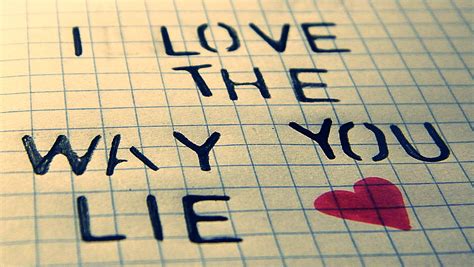 I LOVE
THE
WAY YOU
LIE